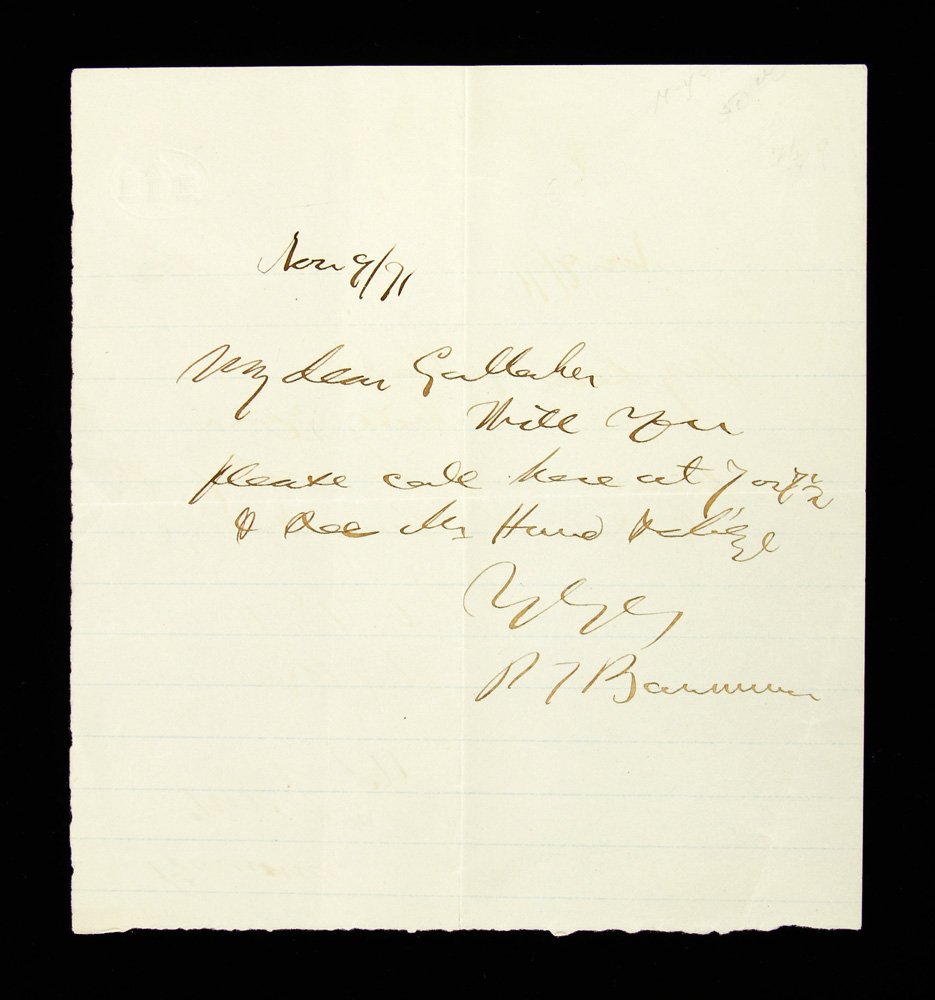 Nov 9/71
My dear Gallaher
Will you
please call here at 7 or 7 1/2
& see Mr Hurd & oblige
P T Barnum